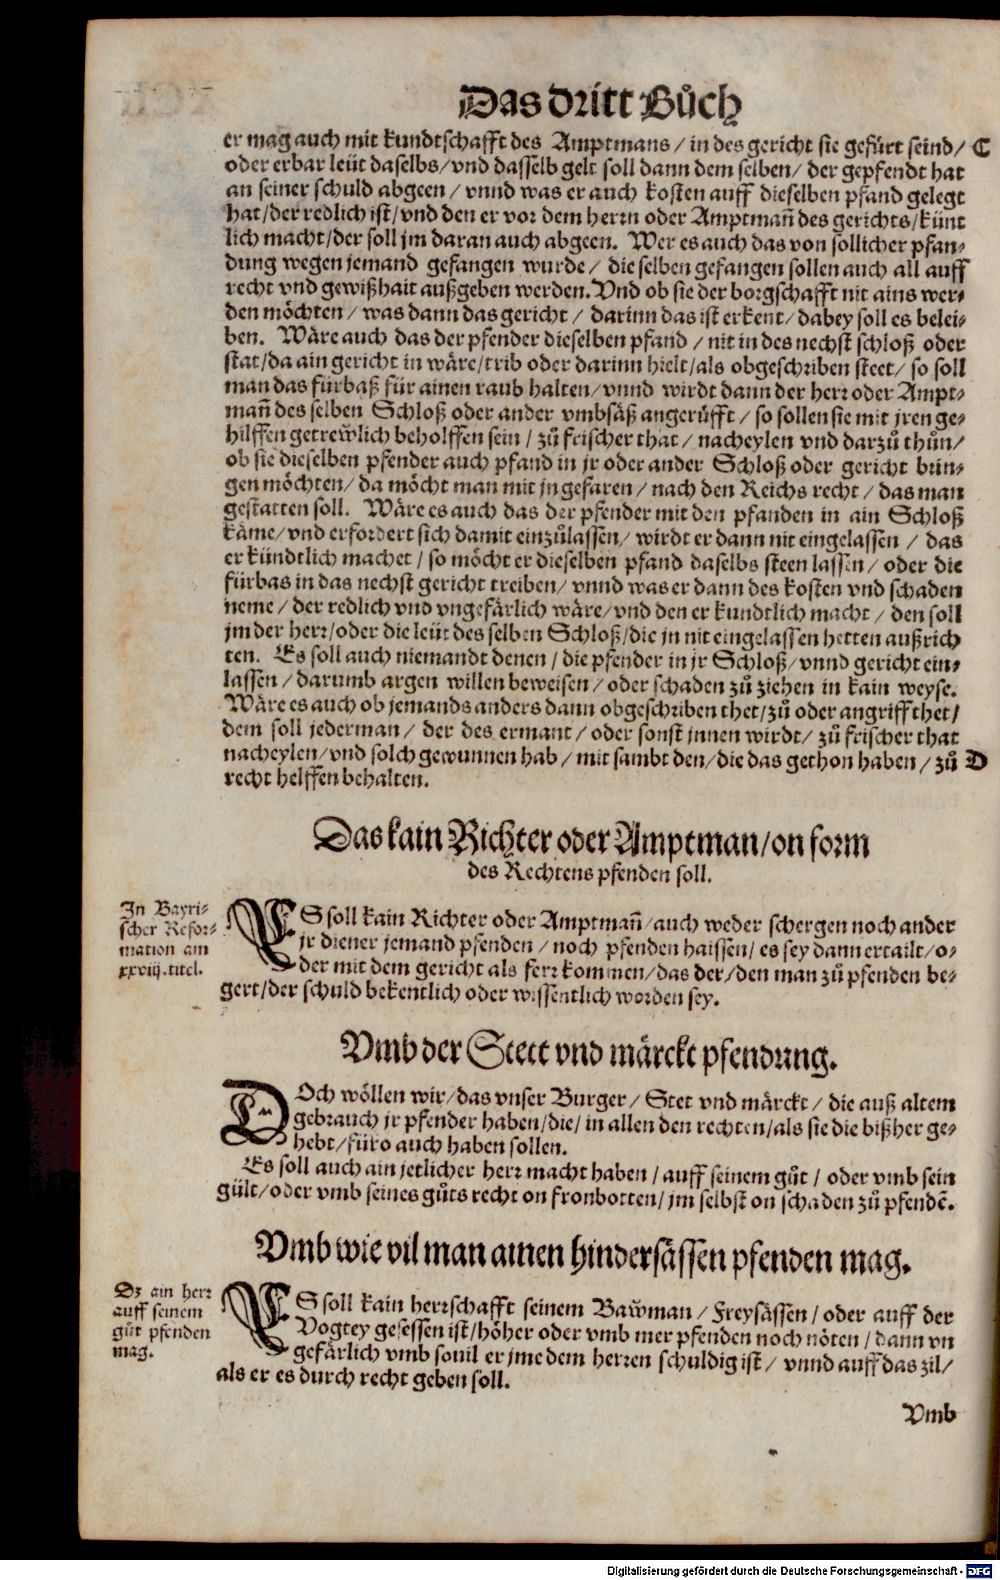 Das dritt Bůch
er mag auch mit kundtschafft des Amptmans / in des gericht sie gefürt seind / C
oder erbar leüt daselbs / vnd dasselb gelt soll dann dem selben / der gepfendt hat
an seiner schuld abgeen / vnnd was er auch kosten auff dieselben pfand gelegt
hat / der redlich ist / vnd den er vor dem herrn oder Amptmañ des gerichts / künt
lich macht / der soll jm daran auch abgeen. Wer es auch das von sollicher pfan-
dung wegen jemand gefangen wurde / die selben gefangen sollen auch all auff
recht vnd gewißhait außgeben werden. Vnd ob sie der borgschafft nit ains wer-
den möchten / was dann das gericht / darinn das ist erkent / dabey soll es belei-
ben. Wäre auch das der pfender dieselben pfand / nit in des nechst schloß oder
stat / da ain gericht in wäre / trib oder darinn hielt / als obgeschriben steet / so soll
man das fürbaß für ainen raub halten / vnnd wirdt dann der herr oder Ampt-
mañ des selben Schloß oder ander vmbsäß angerůfft / so sollen sie mit jren ge-
hilffen getrewlich beholffen sein / zů frischer that / nacheylen vnd darzů thůn /
ob sie dieselben pfender auch pfand in jr oder ander Schloß oder gericht brin-
gen möchten / da möcht man mit jn gefaren / nach den Reichs recht / das man
gestatten soll. Wäre es auch das der pfender mit den pfanden in ain Schloß
käme / vnd erfordert sich damit einzůlassen / wirdt er dann nit eingelassen / das
er kündtlich machet / so möcht er dieselben pfand daselbs steen lassen / oder die
fürbas in das nechst gericht treiben / vnnd was er dann des kosten vnd schaden
neme / der redlich vnd vngefärlich wäre / vnd den er kundtlich macht / den soll
jm der herr / oder die leüt des selben Schloß / die jn nit eingelassen hetten außrich
ten. Es soll auch niemandt denen / die pfender in jr Schloß / vnnd gericht ein-
lassen / darumb argen willen beweisen / oder schaden zů ziehen in kain weyse.
Wäre es auch ob jemands anders dann obgeschriben thet / zů oder angriff thet /
dem soll jederman / der des ermant / oder sonst jnnen wirdt / zů frischer that
nacheylen / vnd solch gewunnen hab / mit sambt den / die das gethon haben / zů D
recht helffen behalten.
Das kain Richter oder Amptman / on form
des Rechtens pfenden soll.
In Bayri-
scher Refor-
mation am
xxviij. titel.
ES soll kain Richter oder Amptmañ / auch weder schergen noch ander
jr diener jemand pfenden / noch pfenden haissen / es sey dann ertailt / o-
der mit dem gericht als ferr kommen / das der / den man zů pfenden be-
gert / der schuld bekentlich oder wissentlich worden sey.
Vmb der Stett vnd märckt pfendung.
DOch wöllen wir / das vnser Burger / Stet vnd märckt / die auß altem
gebrauch jr pfender haben / die / in allen den rechten / als sie die bißher ge-
hebt / füro auch haben sollen.
Es soll auch ain jetlicher herr macht haben / auff seinem gůt / oder vmb sein
gült / oder vmb seines gůts recht on fronbotten / jm selbst on schaden zů pfendē.
Vmb wie vil man ainen hindersässen pfenden mag.
Dz ain herr
auff seinem
gůt pfenden
mag.
ES soll kain herrschafft seinem Bawman / Freysässen / oder auff der
Vogtey gesessen ist / höher oder vmb mer pfenden noch nöten / dann vn
gefärlich vmb souil er jme dem herren schuldig ist / vnnd auff das zil /
als er es durch recht geben soll.
Vmb
Digitalisierung gefördert durch die Deutsche Forschungsgemeinschaft - DFG